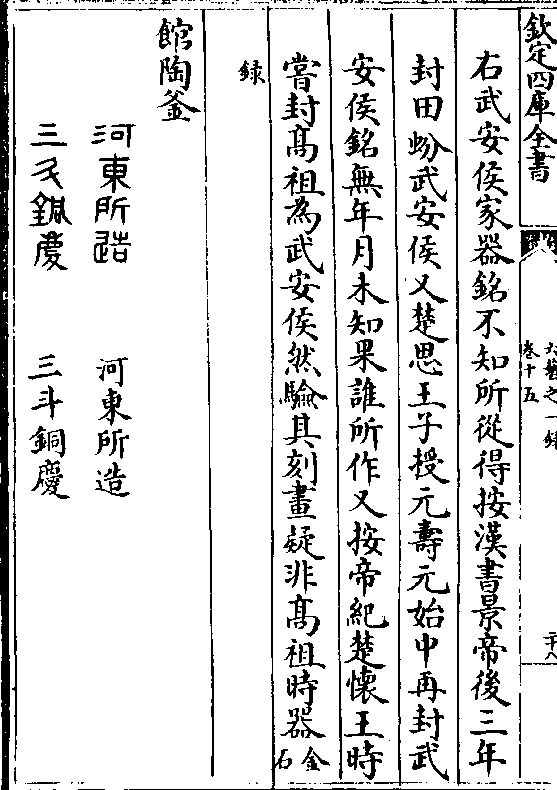 欽定四庫全書
六藝之一録
卷十五
二十八
右武安侯家器銘不知所從得按漢書景帝後三年
封田蚡武安侯又楚思王子授元壽元始中再封武
安侯銘無年月未知果誰所作又按帝紀楚懷王時
嘗封高祖為武安侯然驗其刻畫疑非高祖時器金石
録
館陶釜
河東所造
河東所造
三斗銅慶
三斗銅慶